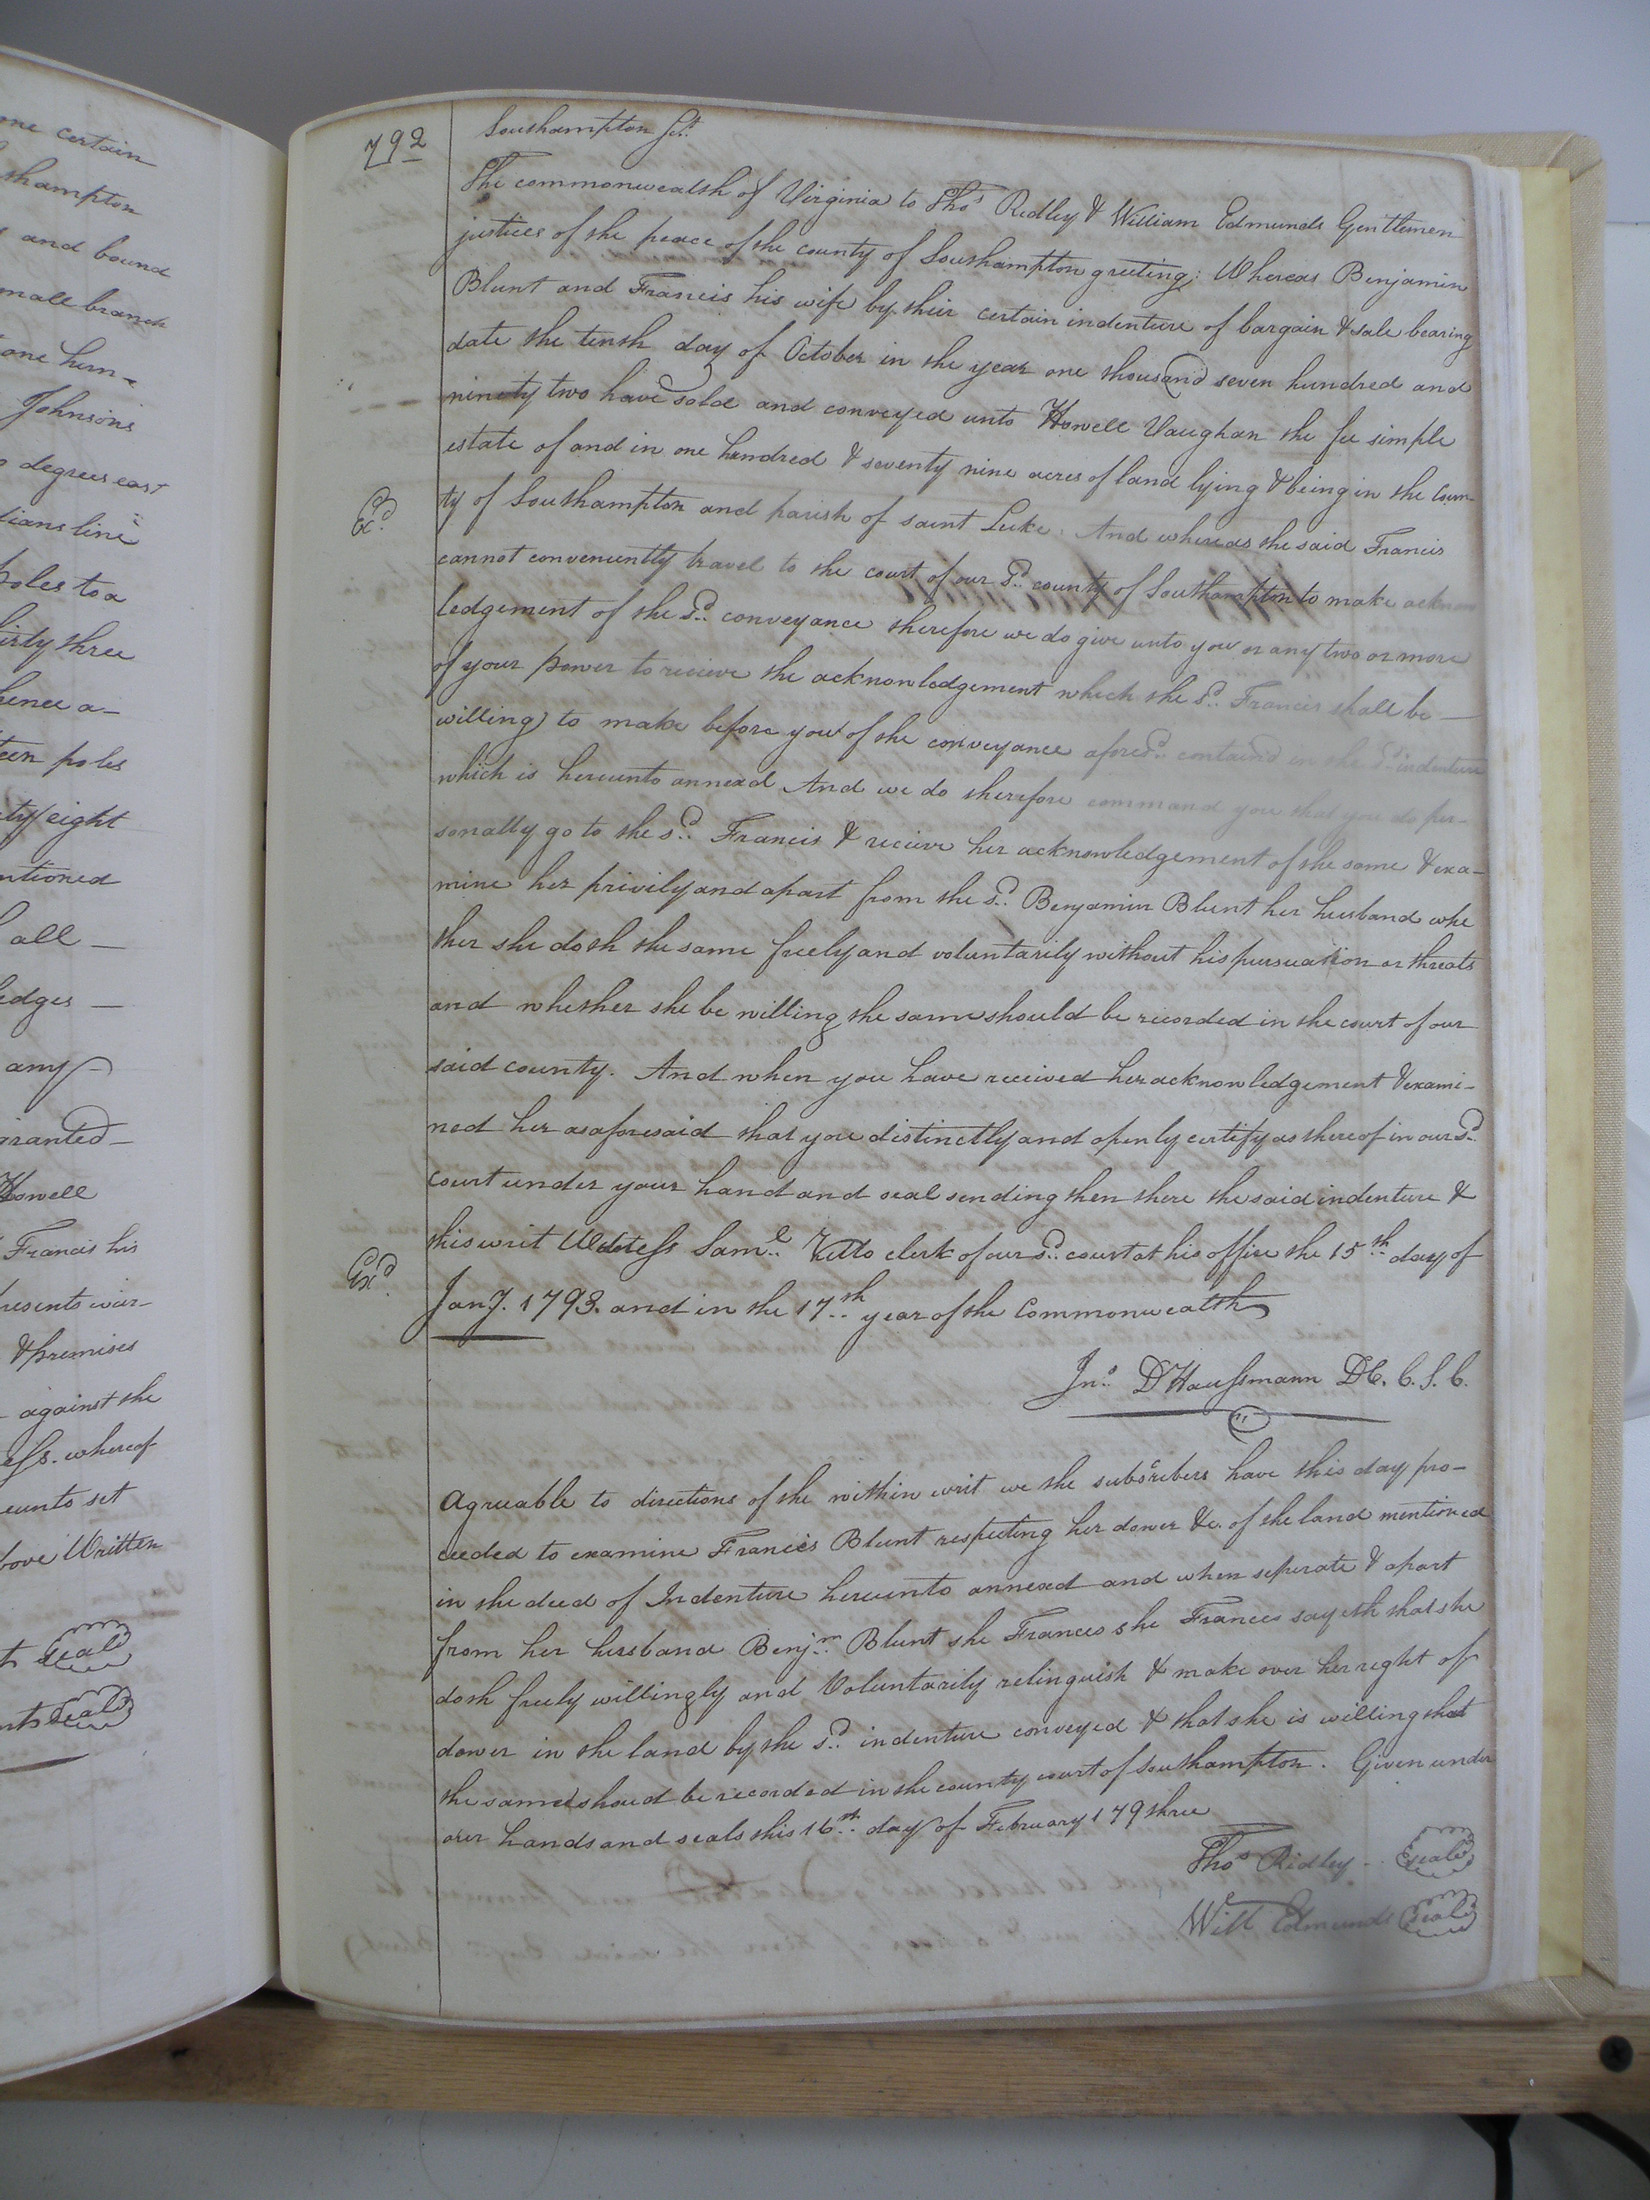 one certain
shampton
and bound
mall branch
one hun-
Johnson's
degrees east
dians line
poles to a
irty three
hence a-
teen poles
ety eight
ntioned
all -
edges -
any
granted -
Howell
Francis his
resents war-
& premises
against the
ess. whereof
eunto set
bove Written
Seal
Seal
792
Southampton Sct.
The commonwealth of Virginia to Thos. Ridley & William Edmunds Gentlemen
justices of the peace of the county of Southampton greeting: Whereas Benjamin
Blunt and Francis his wife by their certain indenture of bargain & sale bearing
date the tenth day of October in the year one thousand seven hundred and
ninety two have sold and conveyed unto Howell Vaughan the fee simple
estate of and in one hundred & seventy nine acres of land lying & being in the coun-
Exd.
ty of Southampton and parish of saint Luke. And whereas the said Francis
cannot conveniently travel to the court of our sd. county of Southampton to make acknow
ledgement of the sd. conveyance therefore we do give unto you or any two or more
of your power to recieve the acknowledgement which the sd. Francis shall be -
willing to make before you of the conveyance aforesd. contain'd in the sd. indenture
which is hereunto annexd And we do therefore command you that you do per-
sonally go to the sd. Francis & recieve her acknowledgement of the same & exa-
mine her privily and apart from the sd. Benjamin Blunt her husband whe
ther she doth the same freely and voluntarily without his pursuation or threats
and whether she be willing the same should be recorded in the court of our
said county. And when you have received her acknowledgement & exami-
ned her as aforesaid that you distinctly and openly certify us thereof in our sd.
court under your hand and seal sending then there the said indenture &
this writ Witness Saml. Kello clerk of our sd. court at his office the 15th. day of
Exd.
Jany. 1793. and in the 17th. year of the Commonwealth
Jno. D'Haussmann D C. C. S. C.
Agreeable to directions of the within writ we the subscribers have this day pro-
ceeded to examine Francis Blunt respecting her dower &c. of the land mentioned
in the deed of Indenture hereunto annexed and when seperate & apart
from her husband Benjm. Blunt she Frances she Frances sayeth that she
doth freely willingly and Voluntarily relinquish & make over her right of
dower in the land by the sd. indenture conveyed & that she is willing that
the same shoud be recorded in the county court of Southampton. Given under
our hands and seals this 16th. day of February 179three
Thos. Ridley Seal
Will Edmunds Seal